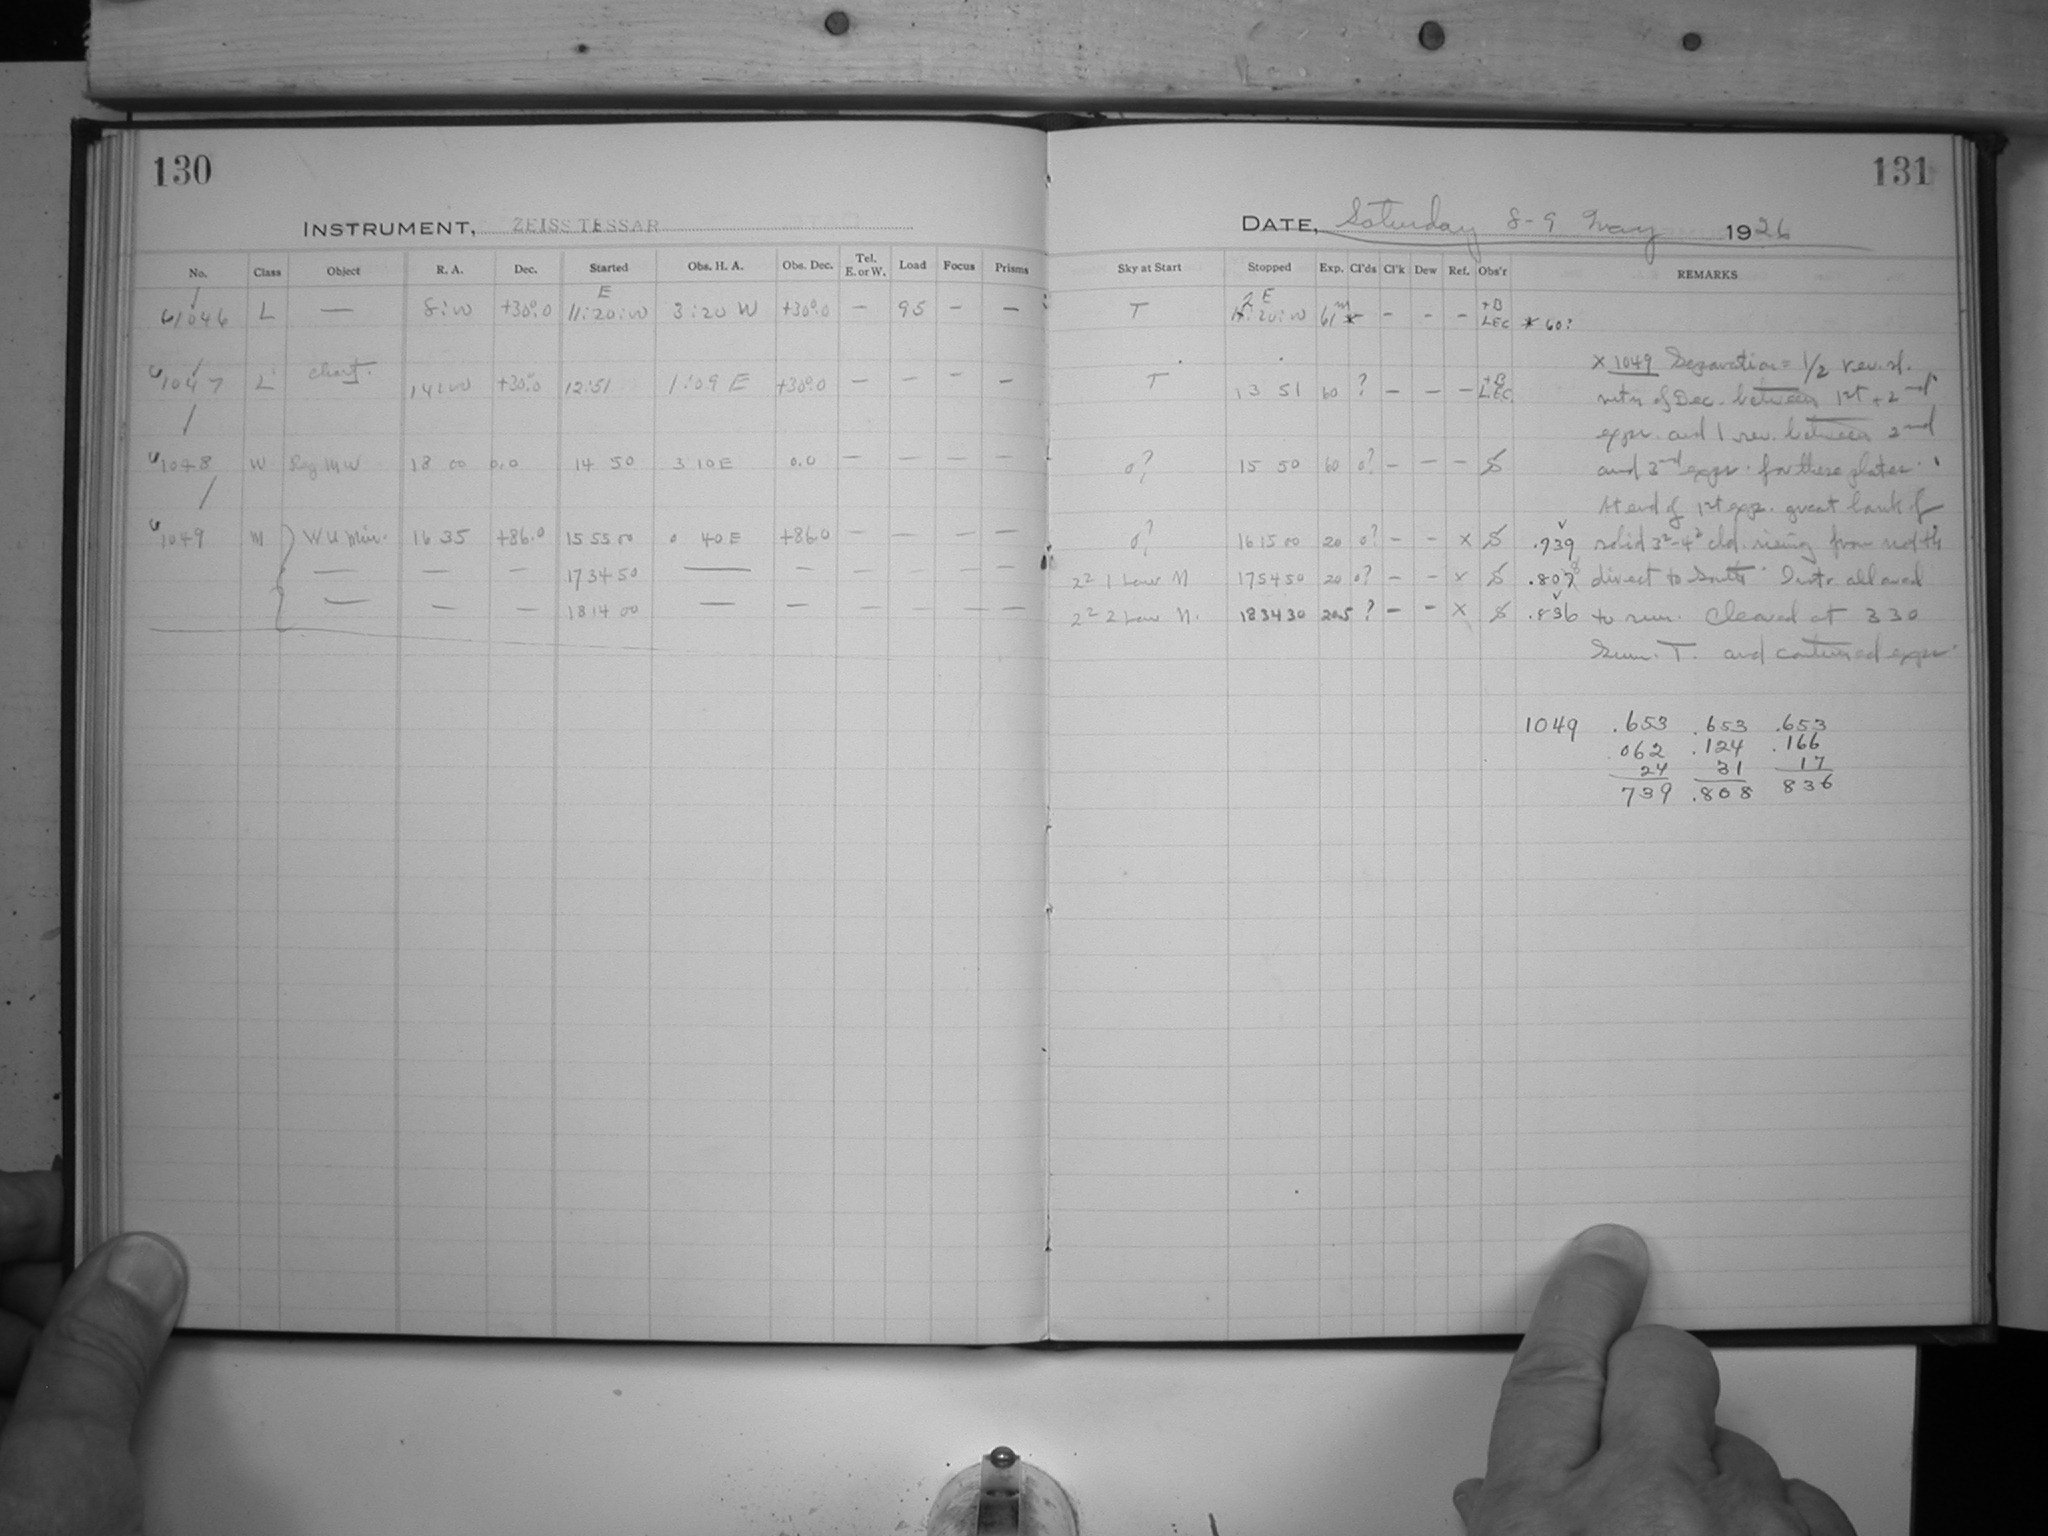 130
131
INSTRUMENT, ZEISS TESSAR
DATE, Saturday 8-9 May 1926
No. Class Object R. A. Dec. Started Obs. H. A. Obs. Dec. Tel. E. or W. Load Focus Prisms Sky at Start Stopped Exp. Cl'ds Cl'k Dew Ref. Obs'r REMARKS
1046 L — 8:00 +30°.0 11:20:00 E 3:20 W +30°.0 — 95 — — T 20:00 E 61 m * — — — — +B LEC * 60?
1047 L chart. 14:00 +30°.0 12:51 1:09 E +30°.0 — — — — T 13 51 60 ? — — — +B LEC
1048 W Reg MW 18 00 0.0 14 50 3 10 E 0.0 — — — — 0? 15 50 60 0? — — — S
1049 M W U Min. 16 35 +86.0 15 55 00 0 40 E +86.0 — — — — 0? 16 15 00 20 0? — — X S .739
— — — 17 34 50 — — — — — — 2² 1 Low N 17 54 50 20 0? — — X S .807 8
— — — 18 14 00 — — — — — — 2² 2 Low N. 18 34 30 20.5 ? — — X S .836
X 1049 Separation = 1/2 rev. sl.
mtn of Dec. between 1st + 2nd
expr. and 1 rev. between 2nd
and 3rd expr. for these plates.
At end of 1st expr. great bank of
solid 3²-4² cld. rising from north
direct to South. Instr. allowed
to run. Cleared at 3 30
Sum. T. and continued expr.
1049 .653 .653 .653
062 .124 .166
24 31 17
739 .808 836